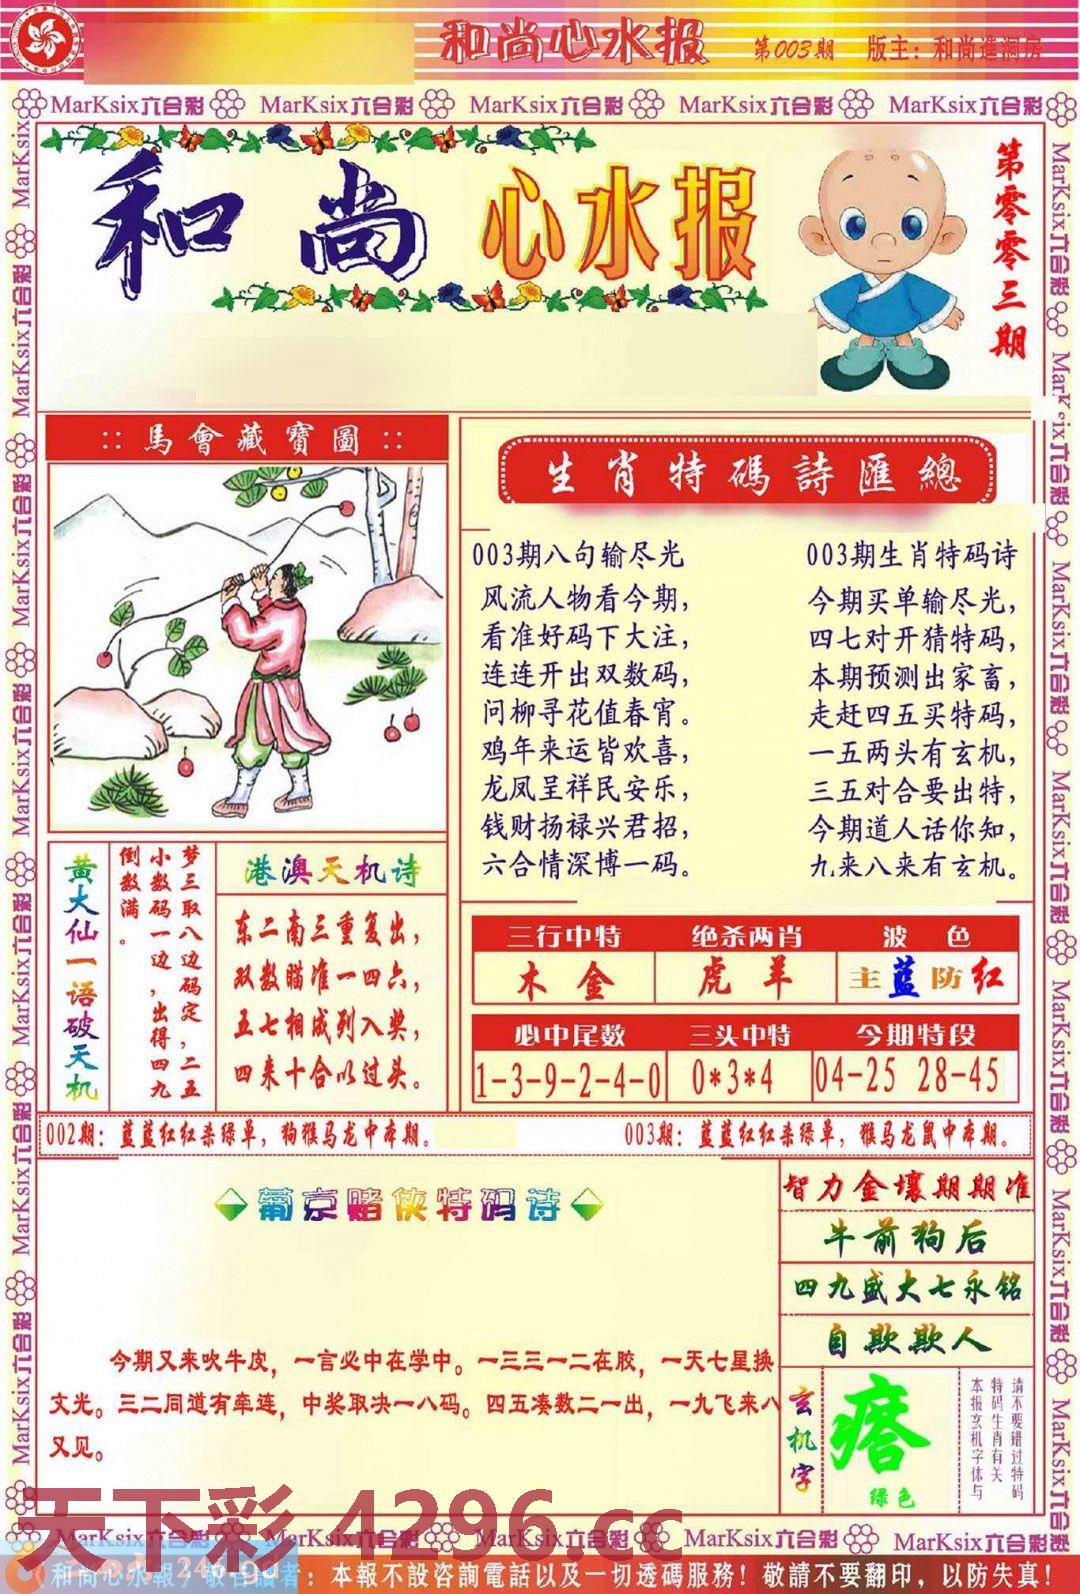 和尚心水报 第003期 版主：和尚進洞房
MarKsix六合彩 MarKsix六合彩 MarKsix六合彩 MarKsix六合彩 MarKsix六合彩
和尚心水报
第零零三期
::馬會藏寶圖::
生肖特碼詩匯總
003期八句输尽光
风流人物看今期，
看准好码下大注，
连连开出双数码，
问柳寻花值春宵。
鸡年来运皆欢喜，
龙凤呈祥民安乐，
钱财扬禄兴君招，
六合情深博一码。
003期生肖特码诗
今期买单输尽光，
四七对开猜特码，
本期预测出家畜，
走赶四五买特码，
一五两头有玄机，
三五对合要出特，
今期道人话你知，
九来八来有玄机。
黄大仙一语破天机
梦三取八边码定，二五
小数码一边，出得四九
倒数满。
港澳天机诗
东二南三重复出，
双数瞄准一四六，
五七相成列入奖，
四来十合以过头。
三行中特 绝杀两肖 波色
木金 虎羊 主蓝防红
必中尾数 三头中特 今期特段
1-3-9-2-4-0 0*3*4 04-25 28-45
002期：蓝蓝红红杀绿单，狗猴马龙中本期。
003期：蓝蓝红红杀绿单，猴马龙鼠中本期。
葡京赌侠特码诗
今期又来吹牛皮，一言必中在学中。一三三一二在胶，一天七星换
文光。三二同道有牵连，中奖取决一八码。四五凑数二一出，一九飞来八
又见。
智力金壤期期准
牛前狗后
四九盛大七永铭
自欺欺人
玄机字
瘩
绿色
请不要错过特码
特码生肖有关
本报玄机字体与
天下彩 4296.cc
MarKsix六合彩 MarKsix六合彩 MarKsix六合彩 MarKsix六合彩 MarKsix六合彩
246.gd
：本報不設咨詢電話以及一切透碼服務！敬請不要翻印，以防失真！